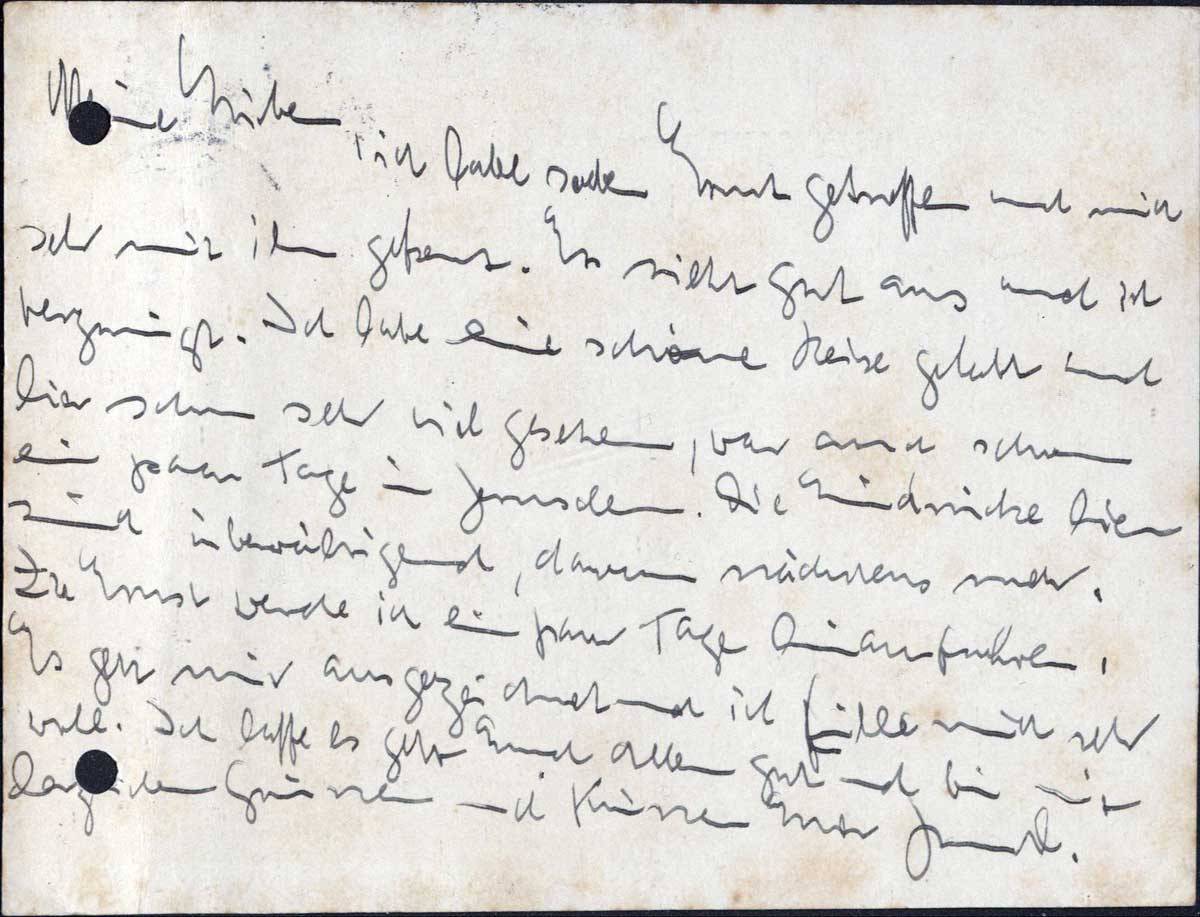 Meine Lieben
ich habe soeben Ernst getroffen und mich
sehr mit ihm gefreut. Er sieht gut aus und ist
vergnügt. Ich habe eine schöne Reise gehabt und
hier schon sehr viel gesehen, war auch schon
ein paar Tage in Jerusalem. Die Eindrücke hier
sind überwältigend, davon nächstens mehr.
Zu Ernst werde ich ein paar Tage hinauffahren.
Es geht mir ausgezeichnet und ich fühle mich sehr
wohl. Ich hoffe es geht Euch allen gut und bin mit
herzlichen Grüssen und Küssen Euer